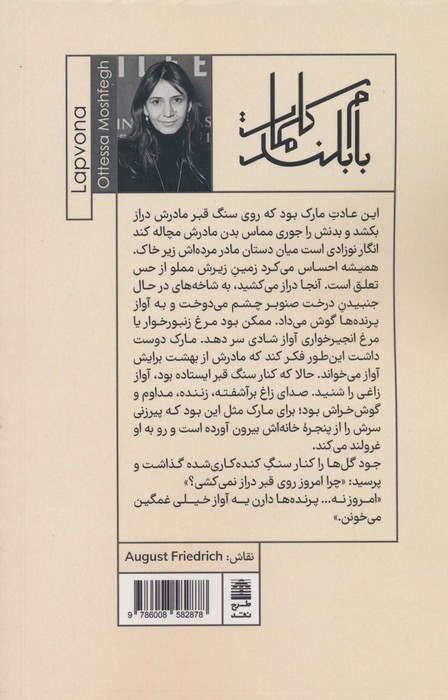 Lapvona
Ottessa Moshfegh
بام بلند
این عادتِ مارک بود که روی سنگ قبر مادرش دراز
بکشد و بدنش را جوری مماس بدن مادرش مچاله کند
انگار نوزادی است میان دستان مادر مرده‌اش زیر خاک.
همیشه احساس می‌کرد زمینِ زیرش مملو از حس
تعلق است. آنجا دراز می‌کشید، به شاخه‌های در حال
جنبیدنِ درخت صنوبر چشم می‌دوخت و به آواز
پرنده‌ها گوش می‌داد. ممکن بود مرغ زنبورخوار یا
مرغ انجیرخواری آواز شادی سر دهد. مارک دوست
داشت این‌طور فکر کند که مادرش از بهشت برایش
آواز می‌خواند. حالا که کنار سنگ قبر ایستاده بود، آواز
زاغی را شنید. صدای زاغ برآشفته، زننده، مداوم و
گوش‌خراش بود؛ برای مارک مثل این بود که پیرزنی
سرش را از پنجرهٔ خانه‌اش بیرون آورده است و رو به او
غرولند می‌کند.
جود گل‌ها را کنار سنگِ کنده‌کاری‌شده گذاشت و
پرسید: «چرا امروز روی قبر دراز نمی‌کشی؟»
«امروز نه... پرنده‌ها دارن یه آواز خیلی غمگین
می‌خونن.»
نقاش: August Friedrich
9 786008 582878
طرح
نقد